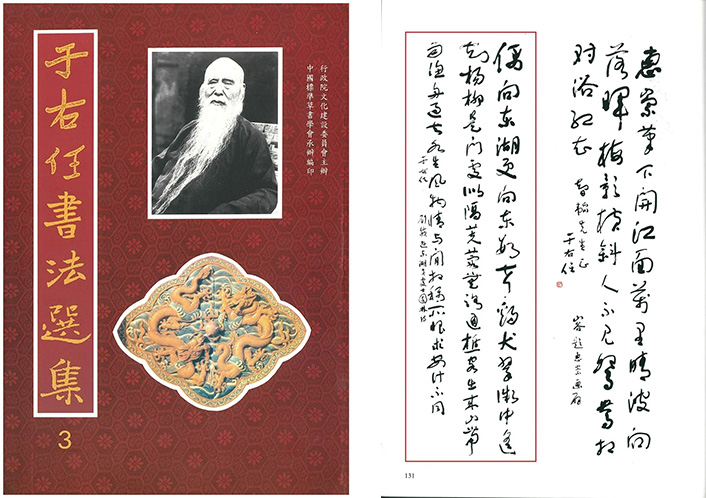 于右任書法選集
3
行政院文化建設委員會主辦
中國標準草書學會承辦編印
惠崇筆下開江面萬里晴波向
落暉梅影橫斜人不見鴛鴦相
對浴紅衣
先生正
于右任
山谷題惠崇畫扇
偶向東湖更向東數聲雞犬翠微中遙
知楊柳是門處似隔芙蓉無路通樵客出來山帶
雨漁舟過去水生風物情与閒相稱所恨求安計不同
于右任
劉威遊東湖黃處士園林詩
131